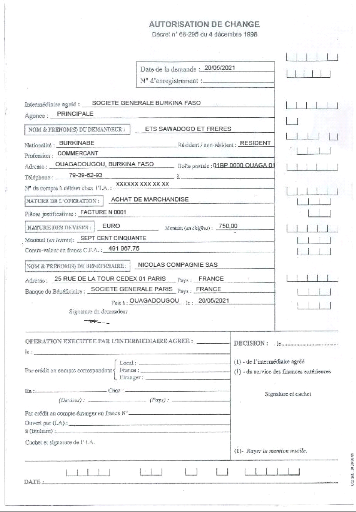 AUTORISATION DE CHANGE
Décret n° 68-295 du 4 décembre 1968
Date de la demande : 20/05/2021
N° d'enregistrement :
Intermédiaire agréé : SOCIETE GENERALE BURKINA FASO
Agence : PRINCIPALE
NOM & PRENOM(S) DU DEMANDEUR : ETS SAWADOGO ET FRERES
Nationalité : BURKINABE Résident / non-résident : RESIDENT
Profession : COMMERCANT
Adresse : OUAGADOUGOU, BURKINA FASO Boîte postale : 01BP 0000 OUAGA 01
Téléphone : 79-39-62-93 à
N° de compte à débiter chez l'I.A. : XXXXXX XXX XX XX
NATURE DE L'OPERATION : ACHAT DE MARCHANDISE
Pièces justificatives : FACTURE N 0001
NATURE DES DEVISES : EURO Montant (en chiffre) : 750,00
Montant (en lettre) : SEPT CENT CINQUANTE
Contre-valeur en francs C.F.A. : 491 967,75
NOM & PRENOM(S) DU BENEFICIAIRE : NICOLAS COMPAGNIE SAS
Adresse : 25 RUE DE LA TOUR CEDEX 01 PARIS Pays : FRANCE
Banque du Bénéficiaire : SOCIETE GENERALE PARIS Pays : FRANCE
Fait à : OUAGADOUGOU le : 20/05/2021
Signature du demandeur
OPERATION EXECUTEE PAR L'INTERMEDIAIRE AGREE :
le :
Par crédit en compte correspondant
Local :
France :
Etranger :
En : Chez :
(Devises) : (Pays) :
Par crédit au compte étranger en francs N°
Ouvert par (I.A) :
à (titulaire) :
Cachet et signature de l'I.A.
DECISION : le
(1) - de l'intermédiaire agréé
(1) - du service des finances extérieures
Signature et cachet
(1)- Rayer la mention inutile.
DATE :